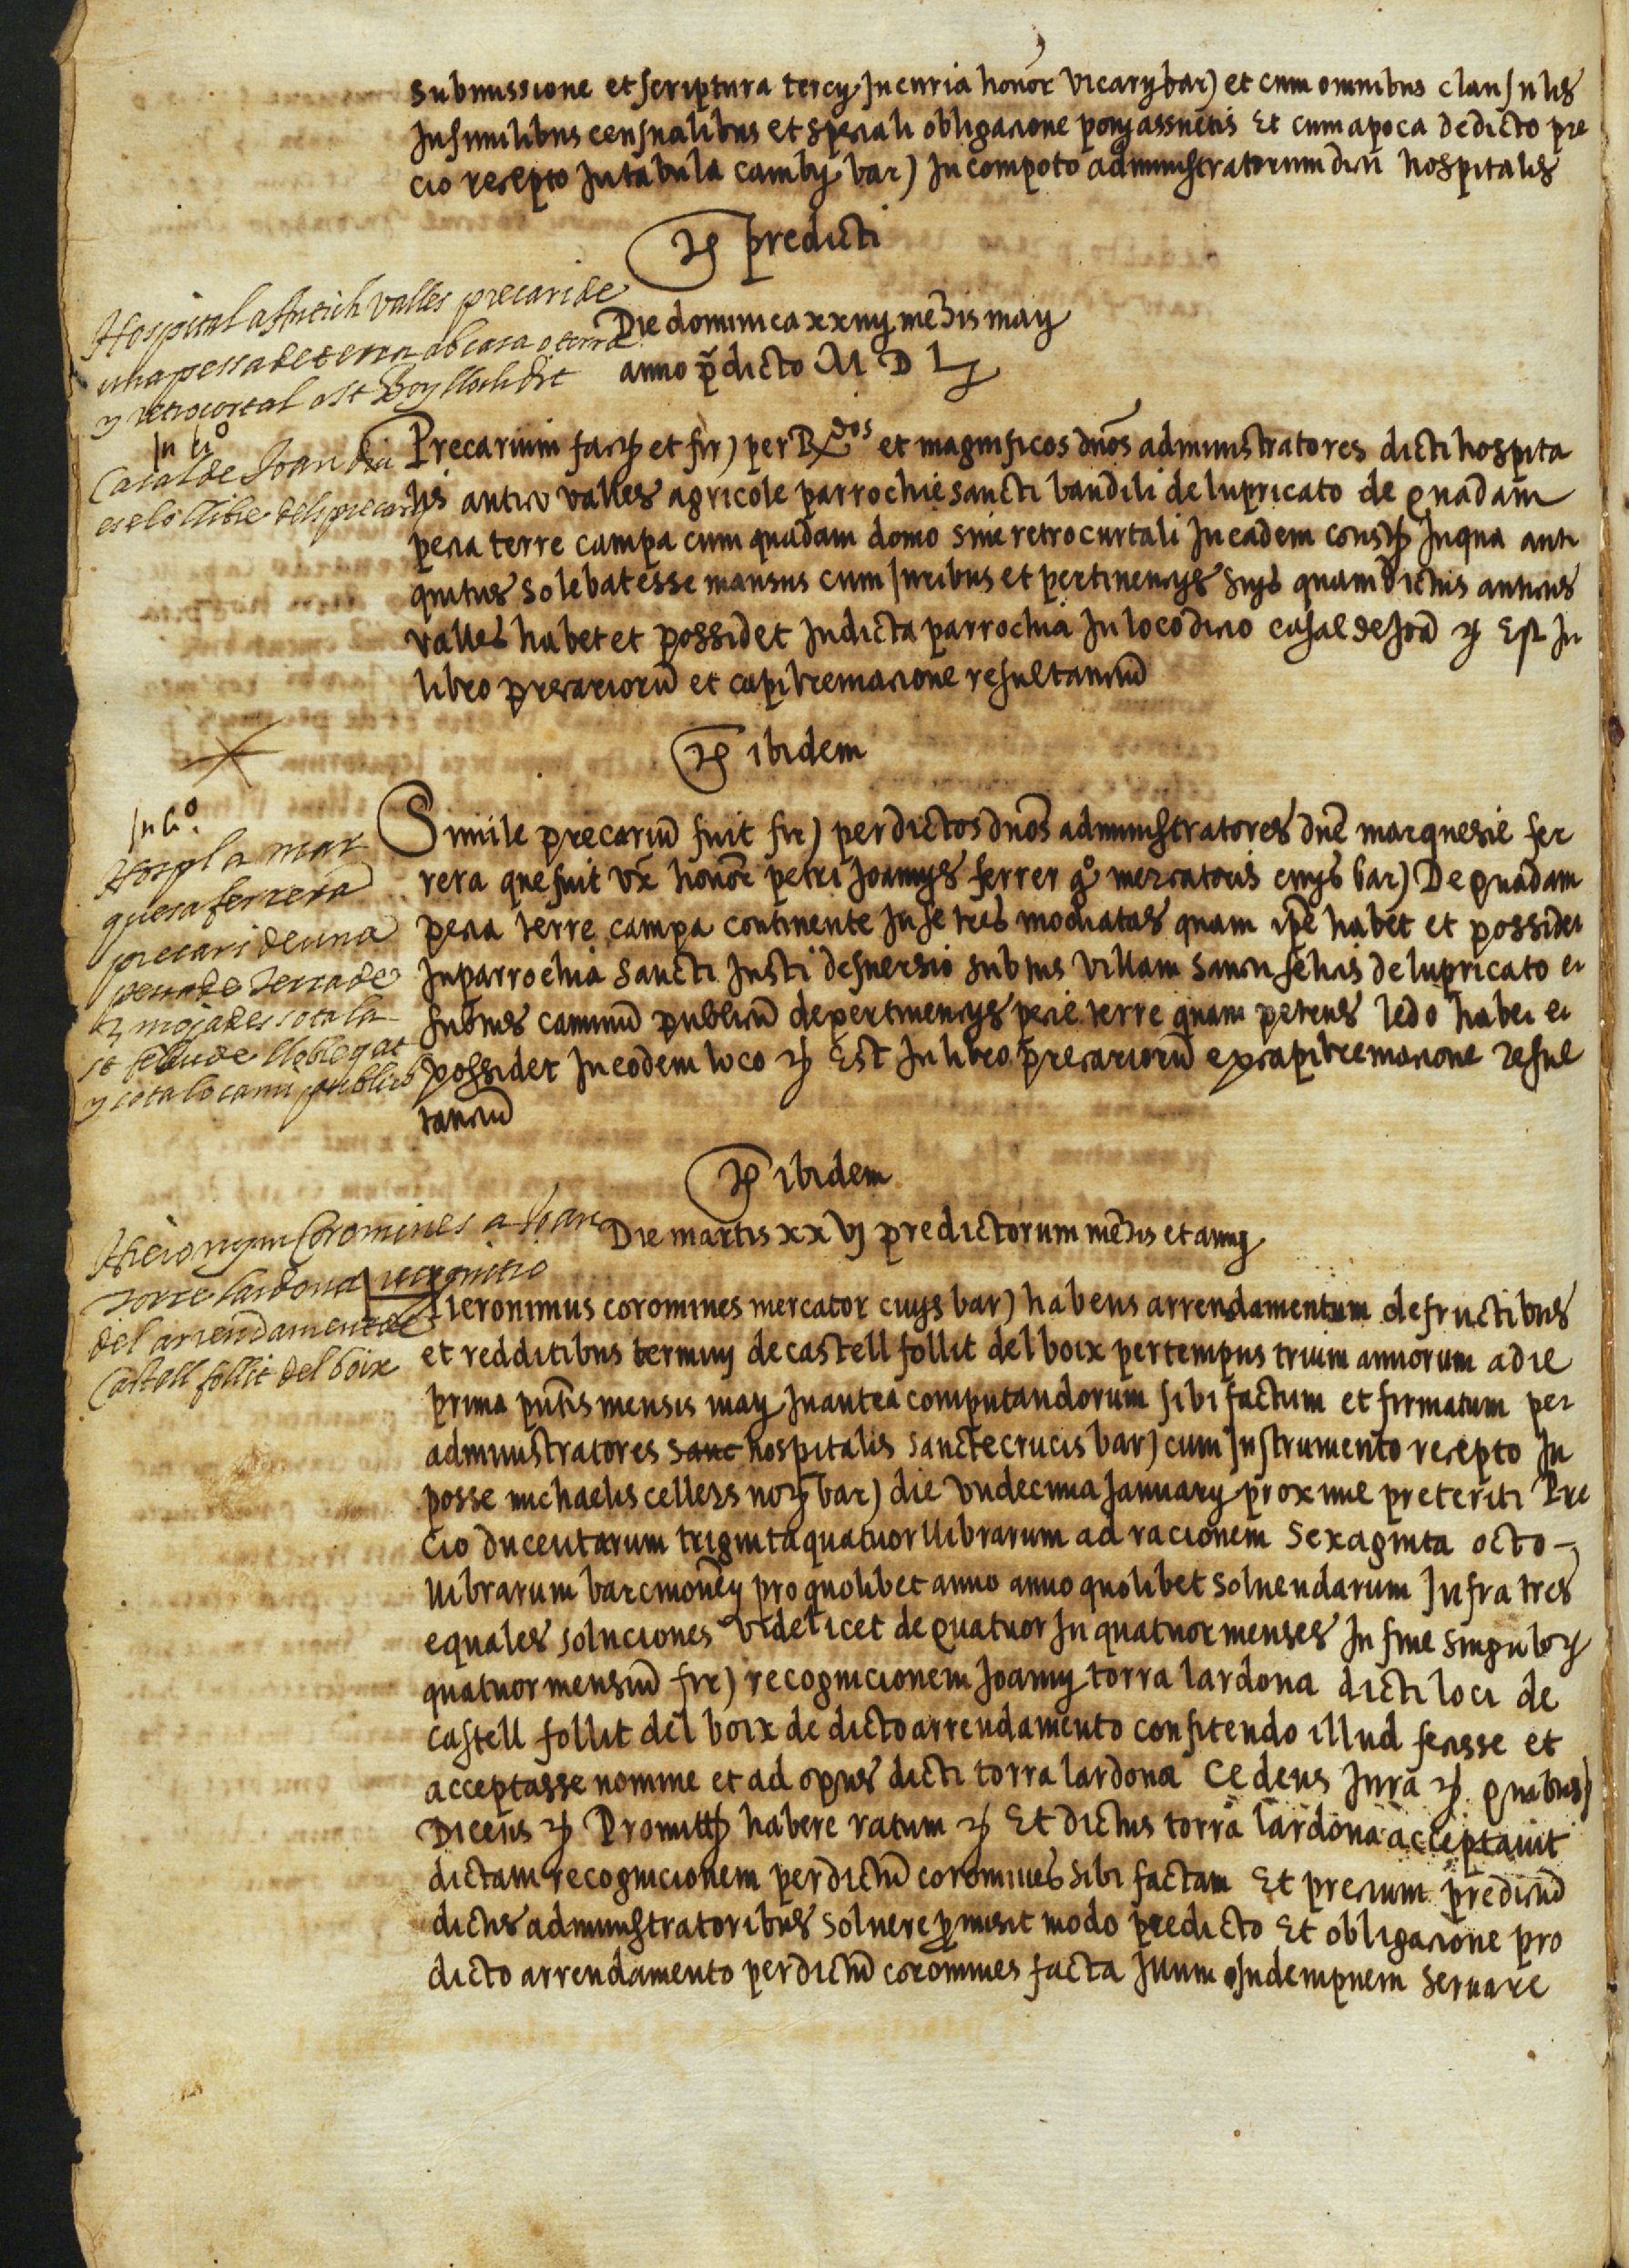 submissione et scriptura tercij Jn curia honor vicarij bar) et cum omnibus clausulis
Jn similibus censualibus et speciali obligacione poni assuetis Et cum apoca de dicto pre
cio recepto Jn tabula cambij bar) Jn compoto administratorum dicti hospitalis
predicti
Hospital a Antich Valles precari de
una pessa de terra ab casa o terra
y retrocortal a St Boy lloch dit
Jn lio
Casal de Joan
es e lo llibre dels precaris
Die dominica xxiiij mensis maij
anno pdicto M D L
Precarium fact et fir) per Rdos et magnificos dnos administratores dicti hospita
lis anticho valles agricole parrochie sancti baudilii de lupricato de quadam
pecia terre campa cum quadam domo sine retrocurtali Jn eadem const Jn qua anti
quitus solebat esse mansus cum Juribus et pertinencijs suis quam dictus anticus
valles habet et possidet Jn dicta parrochia Jn loco dicto casal de Joa Est Jn
libro precarioru et capibremacione resultanciu
ibidem
Jn lio.
Hospl a mar
quesa ferrera
precari de una
pessa de terra de
tres mojades sota la
st feliu de llobregat
y sota lo cami publich
Simile precariu fuit fir) per dictos dnos administratores dne marquesie fer
rera que fuit vx honor petri Joannis ferrer qo mercatoris civis bar) De quadam
pecia terre campa continente Jn se tres modiatas quam ipe habet et possidet
Jn parrochia sancti Justi desuersio subtus villam sancti felicis de lupricato et
subtus caminu publicu de pertinencijs pecie terre quam petrus ledo habet et
possidet Jn eodem loco Est Jn libro precarioru ex capibremacione resul
tanciu
ibidem
Hieronym Coromines a Joan
torre lardona recognitio
del arrendament de
Castell follit del boix
Die martis xxvj predictorum mensis et anni
Hieronimus coromines mercator civis bar) habens arrendamentum de fructibus
et redditibus termini de castell follit del boix per tempus trium annorum a die
prima pntis mensis maij Jn antea computandorum sibi factum et firmatum per
administratores sanc hospitalis sancte crucis bar) cum Jnstrumento recepto Jn
posse michaelis cellers not bar) die vndecima Januarij proxime preteriti Pre
cio ducentarum triginta quatuor llibrarum ad racionem sexaginta octo
llibrarum barcinonen pro quolibet anno anno quolibet soluendarum Jnfra tres
equales soluciones videlicet de quatuor Jn quatuor menses Jn fine singulor
quatuor mensiu fir) recognicionem Joanni torra lardona dicti loci de
castell follit del boix de dicto arrendamento confitendo illud fecisse et
acceptasse nomine et ad opus dicti torra lardona Cedens Jura quibus)
Dicens Promitt habere ratum Et dictus torra lardona acceptauit
dictam recognicionem per dictu coromines sibi factam Et precium predictu
dictis administratoribus soluere promisit modo predicto Et obligacione pro
dicto arrendamento per dictu coromines facta Jllum Jndempnem seruare